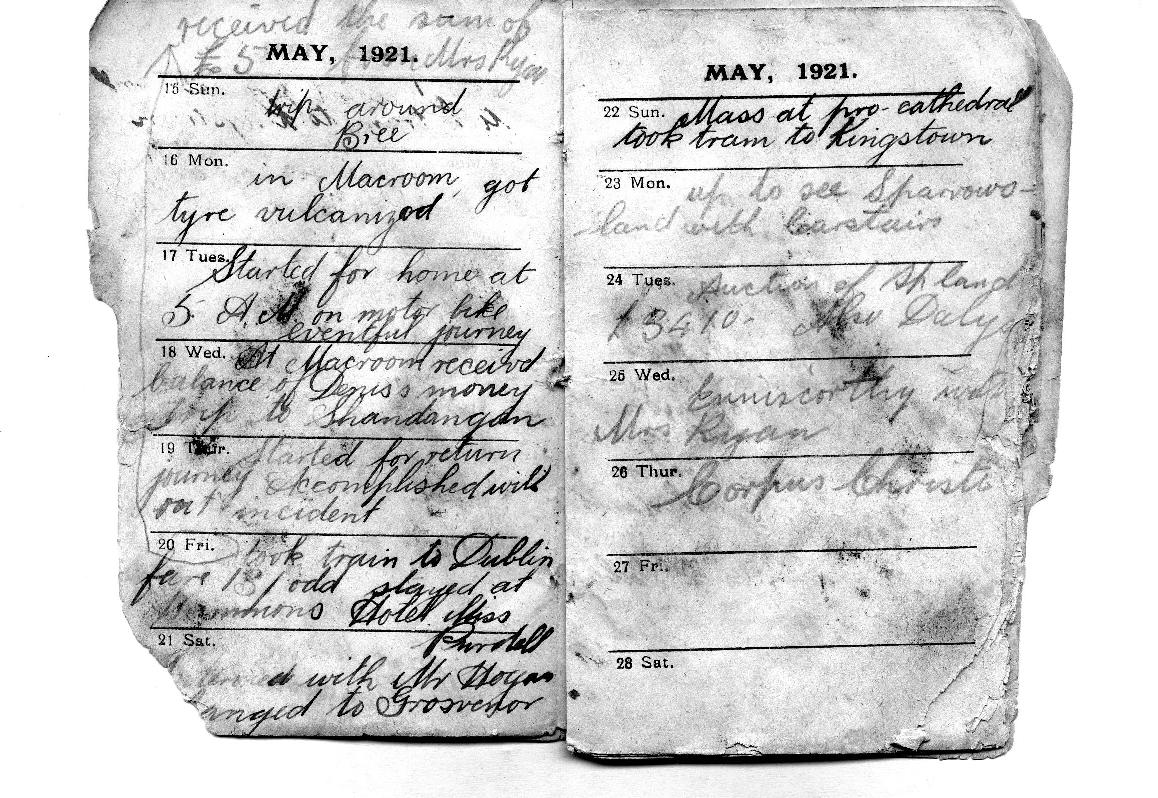 received the sum of
£5 from Mrs Ryan
MAY, 1921.
15 Sun.
trip around
Bree
16 Mon.
in Macroom, got
tyre vulcanized
17 Tues.
Started for home at
5 A.M. on motor bike
eventful journey
18 Wed.
At Macroom received
balance of Denis's money
trip to Shandangan
19 Thur.
Started for return
journey accomplished with
out incident
20 Fri.
took train to Dublin
fare 18/odd stayed at
Hotel Miss
Purdell
21 Sat.
with Mr Hogan
to Grosvenor
MAY, 1921.
22 Sun.
Mass at pro-cathedral
took tram to Kingstown
23 Mon.
up to see Sparrows-
land with Carstairs
24 Tues.
Auction of Sp. land
£3410-
25 Wed.
Enniscorthy with
Mrs Ryan
26 Thur.
Corpus Christi
27 Fri.
28 Sat.